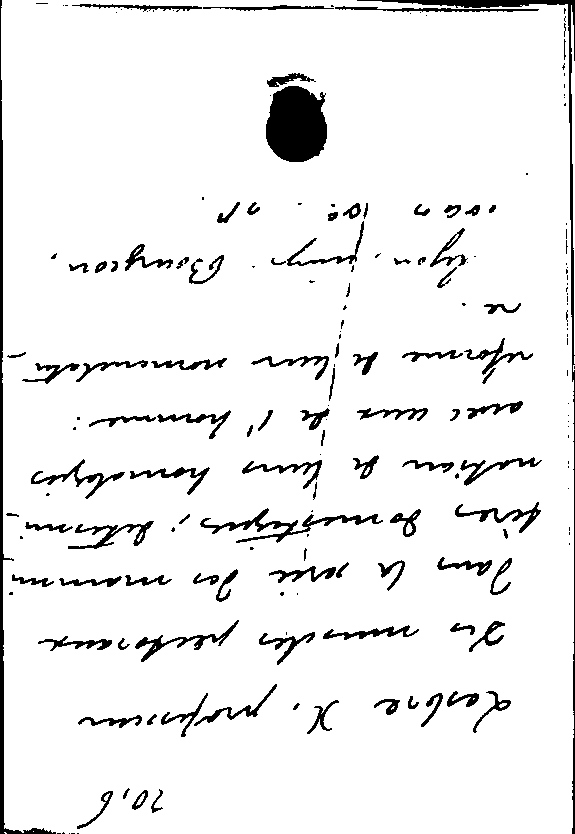 20,6
Lesbre X. professeur
Des muscles pectoraux
dans la série des mammi-
fères domestiques ; détermi-
nation de leurs homologies
avec ceux de l'homme :
réforme de leur nomenclatu-
re.
Lyon, imp. Bourgeon,